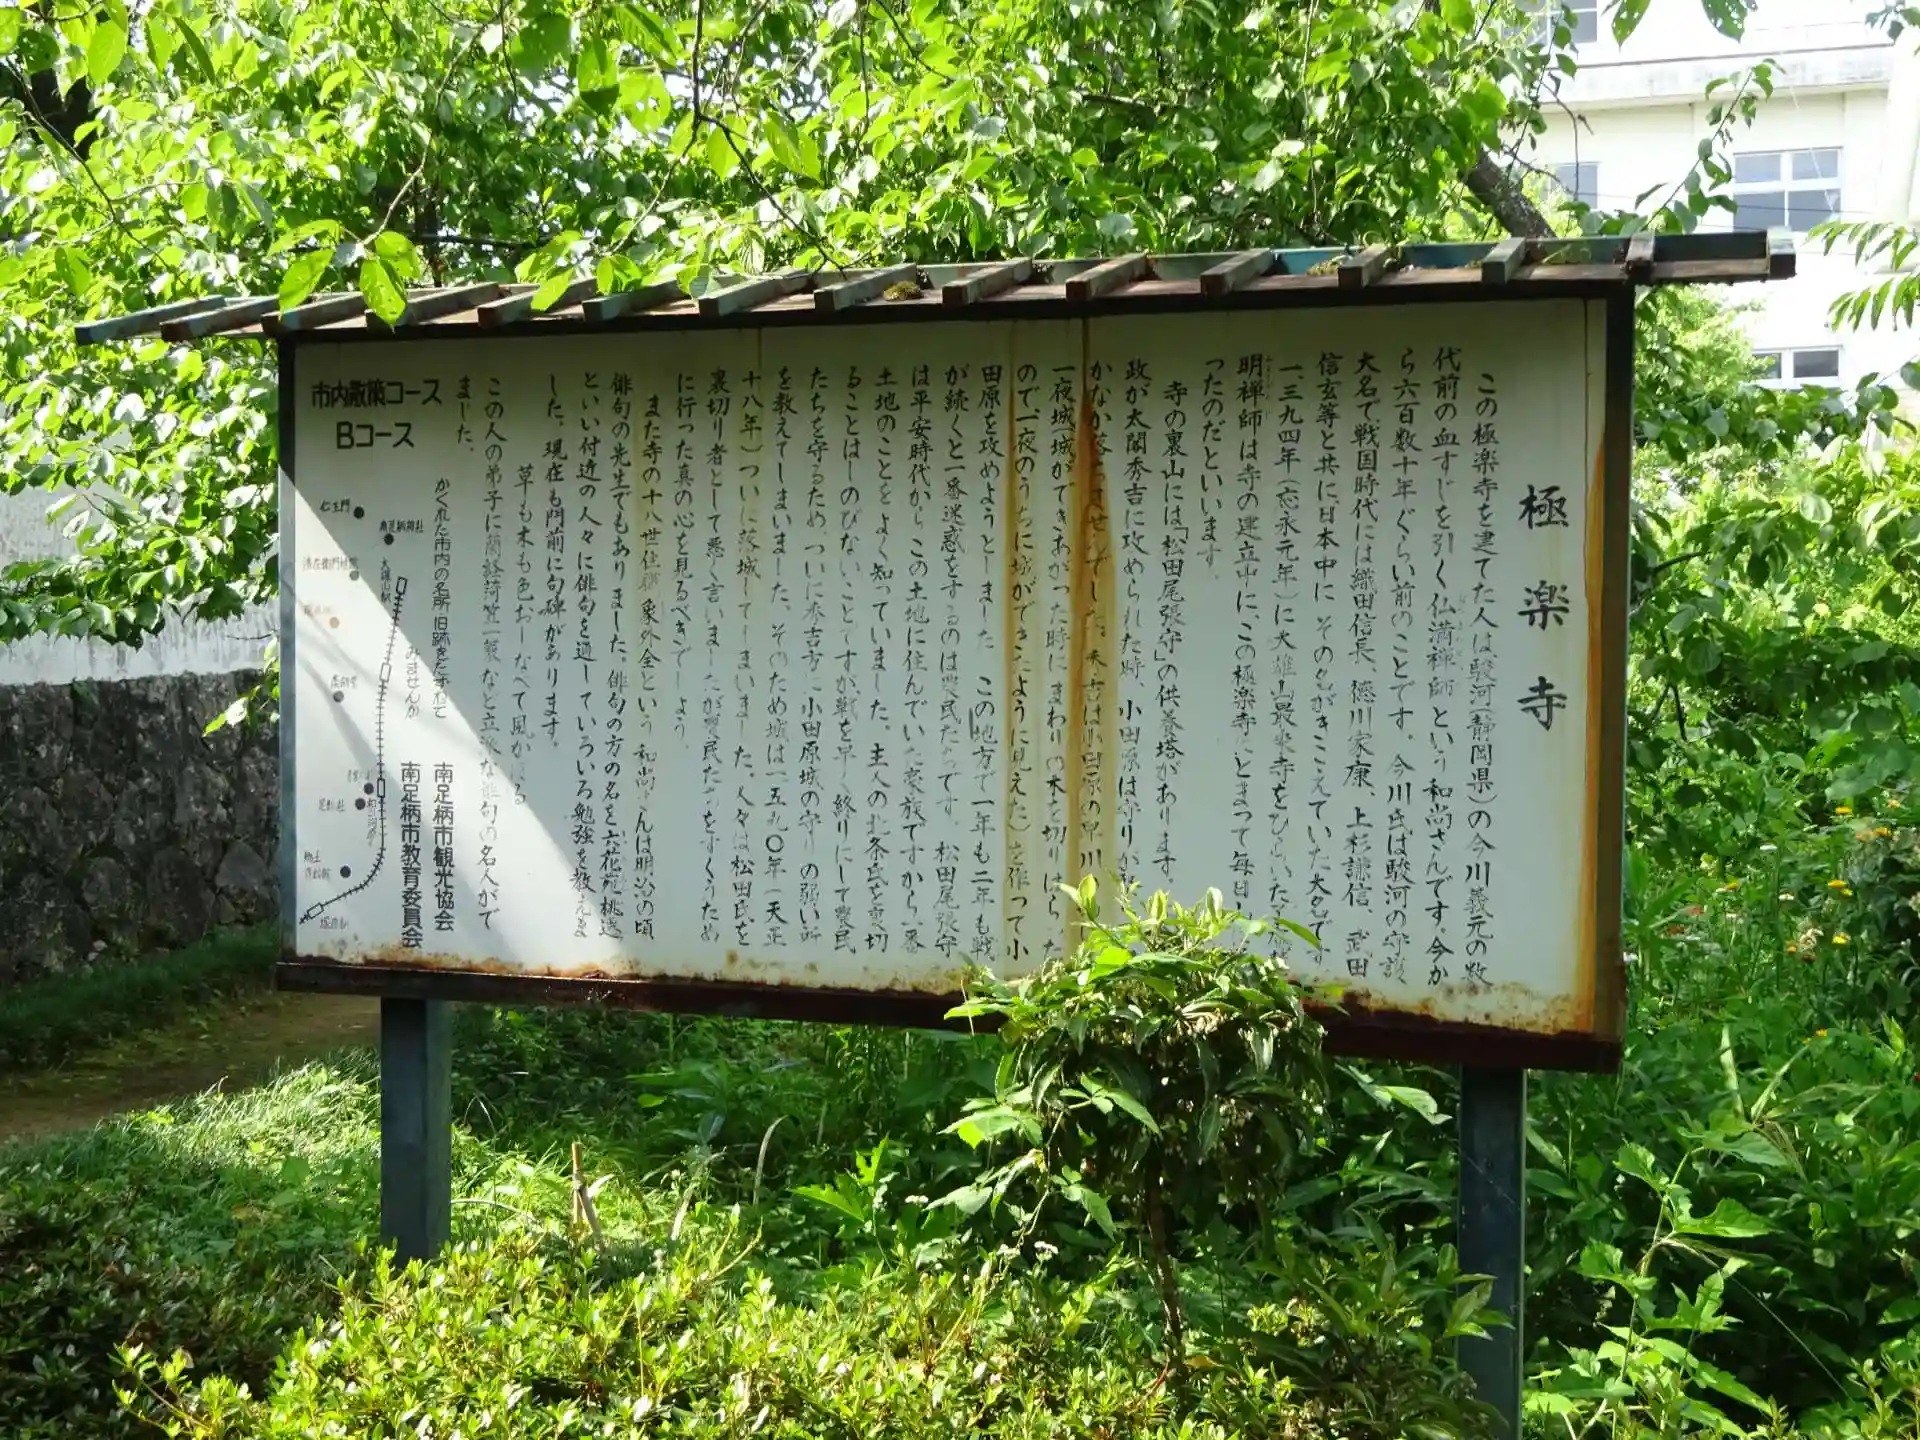 極楽寺
この極楽寺を建てた人は駿河(静岡県)の今川義元の数
代前の血すじを引く仏満禅師という和尚さんです。今か
ら六百数十年ぐらい前のことです。今川氏は駿河の守護
大名で戦国時代には織田信長、徳川家康、上杉謙信、武田
信玄等と共に日本中にその名がきこえていた大名です。
一、三九四年(応永元年)に大雄山最乗寺をひらいた了庵慧
明禅師は寺の建立中に、この極楽寺にとまって毎日
ったのだといいます。
寺の裏山には「松田尾張守」の供養塔があります。
政が太閤秀吉に攻められた時、小田原は守りが
かなか落ちませんでした。秀吉は小田原の早川
一夜城城ができあがった時にまわりの木を切りはらった
ので一夜のうちに城ができたように見えた)を作って小
田原を攻めようとしました。この地方で一年も二年も戦
が続くと一番迷惑をするのは農民たちです。松田尾張守
は平安時代からこの土地に住んでいた豪族ですから一番
土地のことをよく知っていました。主人の北条氏を裏切
ることはしのびないことですが、戦を早く終りにして農民
たちを守るため、ついに秀吉方に小田原城の守りの弱い所
を教えてしまいました。そのため城は一五九〇年(天正
十八年)ついに落城してしまいました。人々は松田氏を
裏切り者として悪く言いましたが農民たちをすくうため
に行った真の心を見るべきでしょう。
また寺の十八世住職象外全という和尚さんは明治の頃
俳句の先生でもありました。俳句の方の名を六花苑桃邊
といい付近の人々に俳句を通していろいろ勉強を教えま
した。現在も門前に句碑があります。
草も木も色おしなべて風かほる
この人の弟子に蘭経琦笠一瓢など立派な俳句の名人がで
ました。
かくれた市内の名所旧跡をたずねて
みませんか
南足柄市観光協会
南足柄市教育委員会
市内散策コース
Bコース
仁王門
南足柄神社
大雄山駅
清左衛門地獄
塚原駅